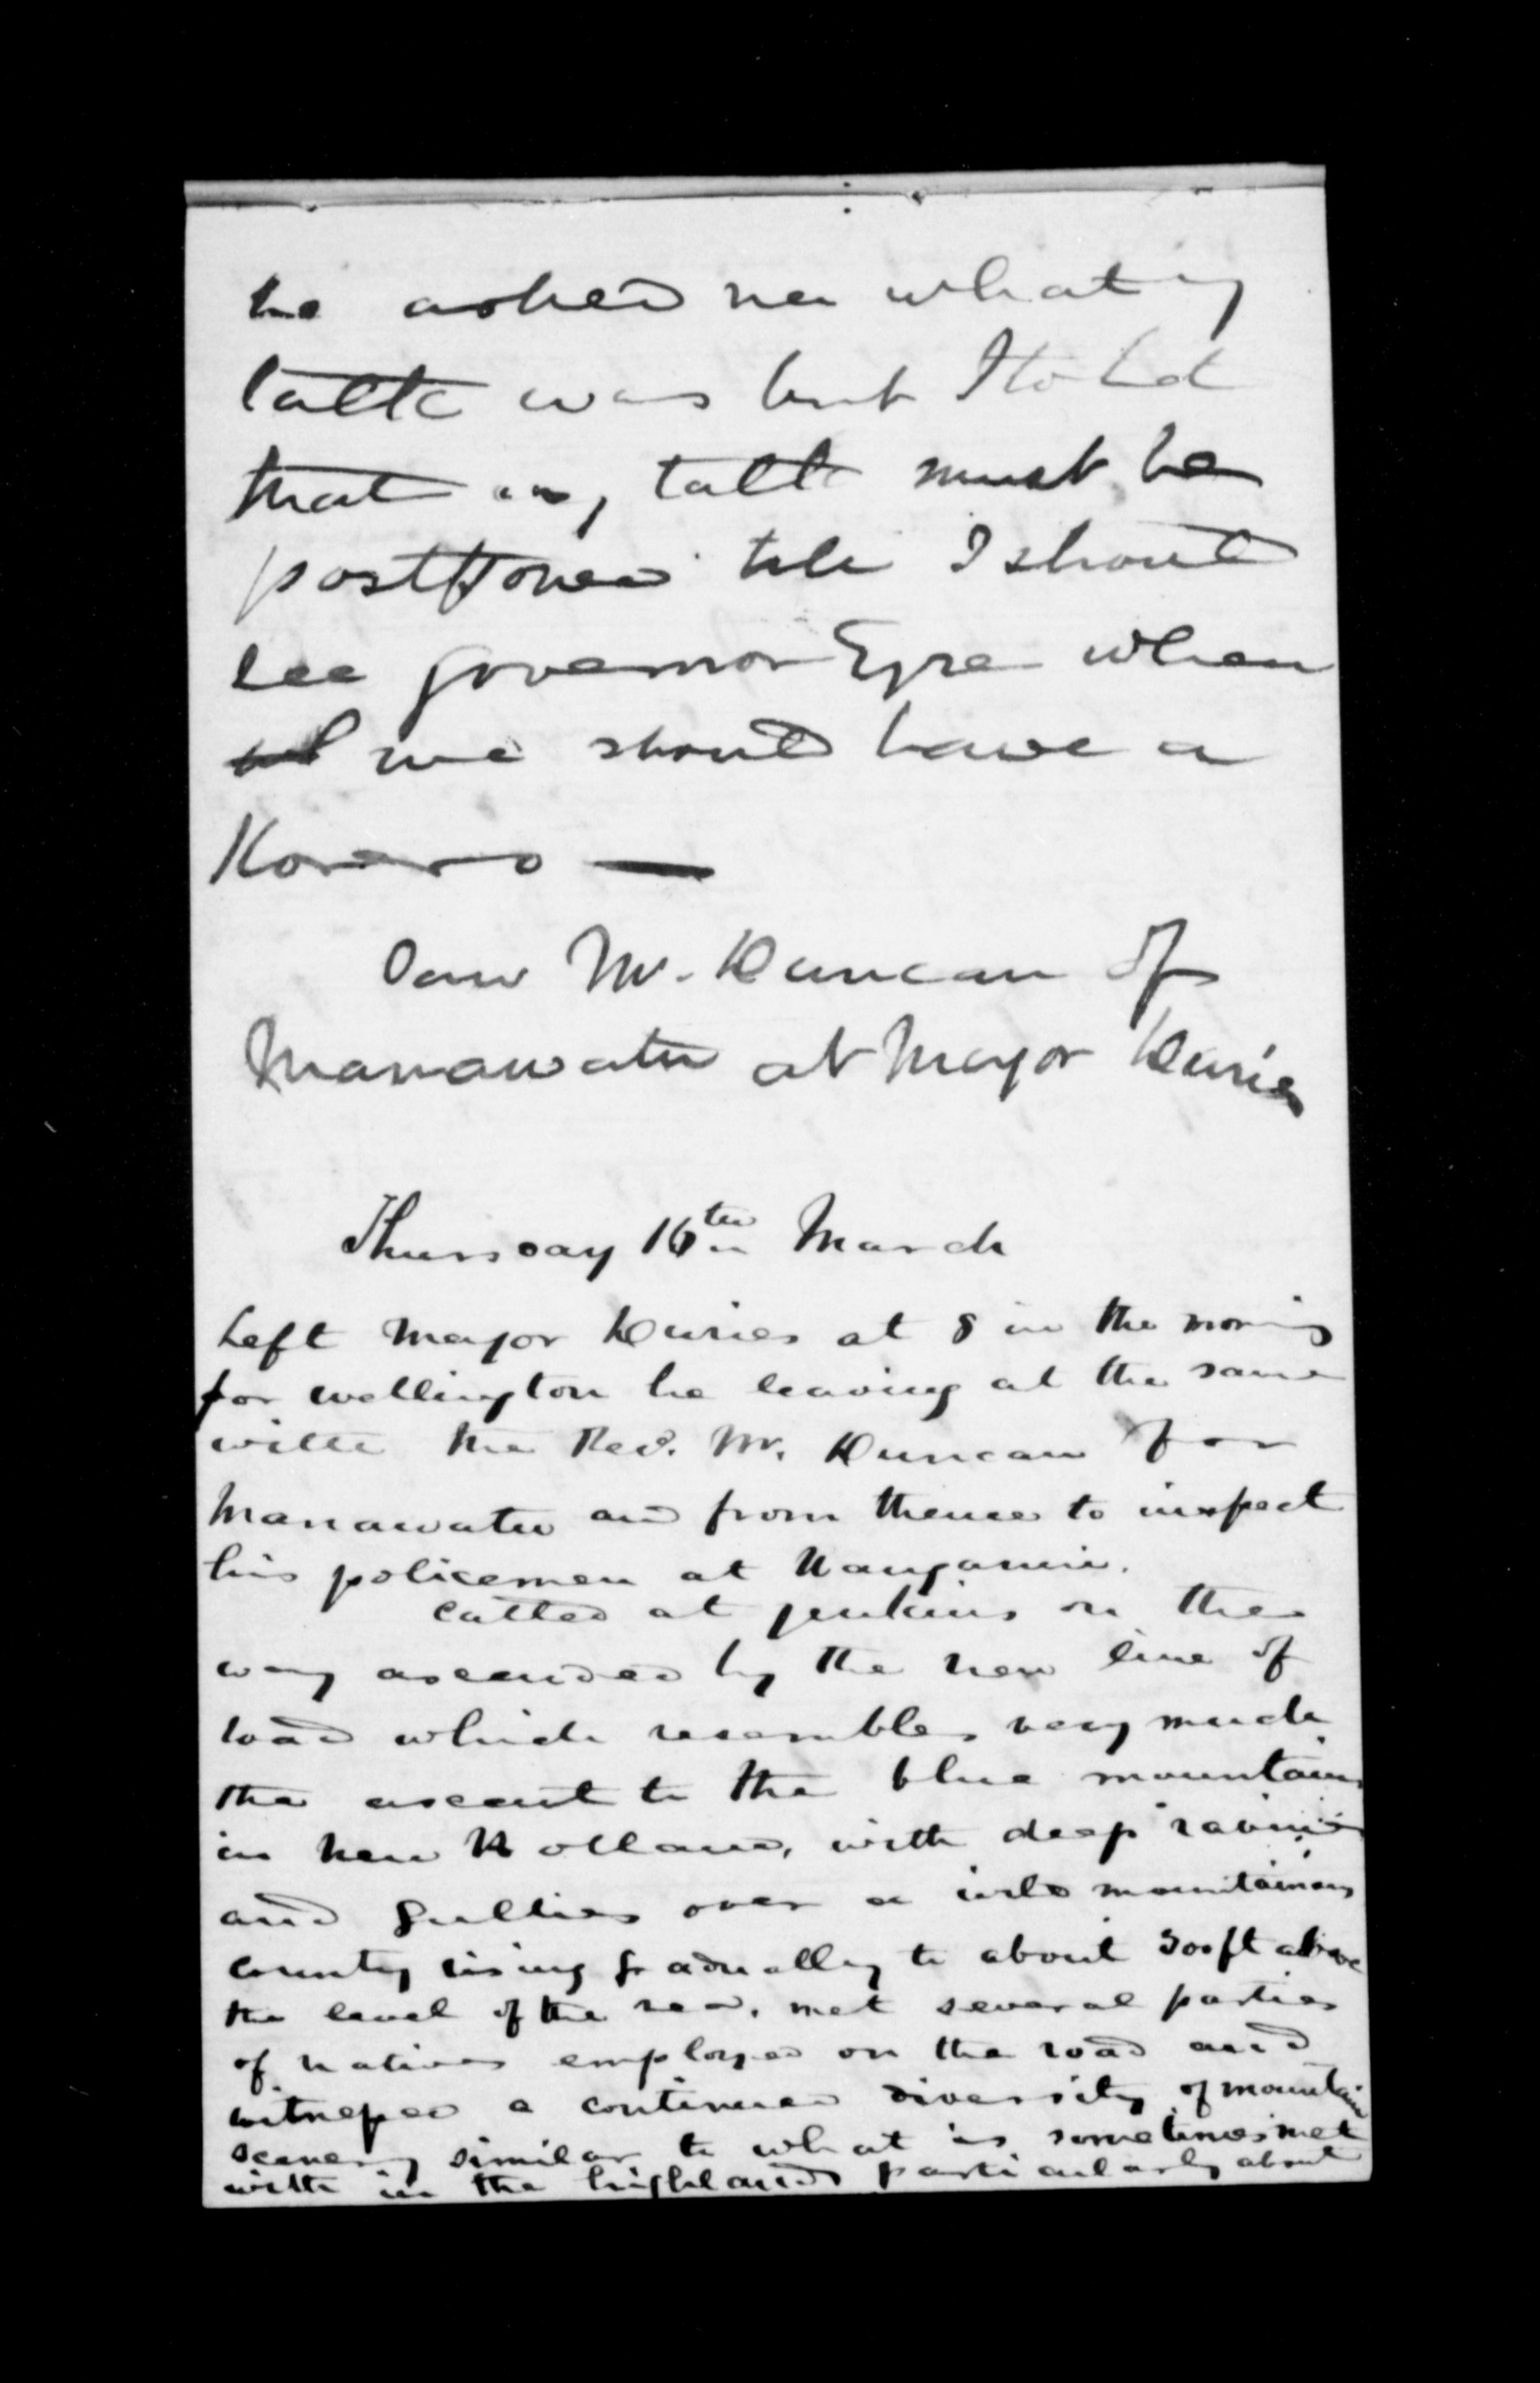 he asked me what my
talk was but I told
that my talk must be
postponed till I should
see governor Eyre when
we should have a
Korero —
Saw Mr. Duncan of
Manawatu at Major Duries
Thursday 16th March
Left Major Duries at 8 in the morning
for wellington he leaving at the same
with the Rev. Mr. Duncan for
Manawatu and from thence to inspect
his policemen at Wanganui.
Called at Jenkins on the
way ascended by the new line of
road which resembles very much
the ascent to the blue mountains
in New Holland, with deep ravines
and gullies over a wild mountainous
country rising gradually to about 300ft above
the level of the sea. met several parties
of natives employed on the road and
witnessed a continued diversity of mountain
scenery similar to what is sometimes met
with in the highlands particularly about